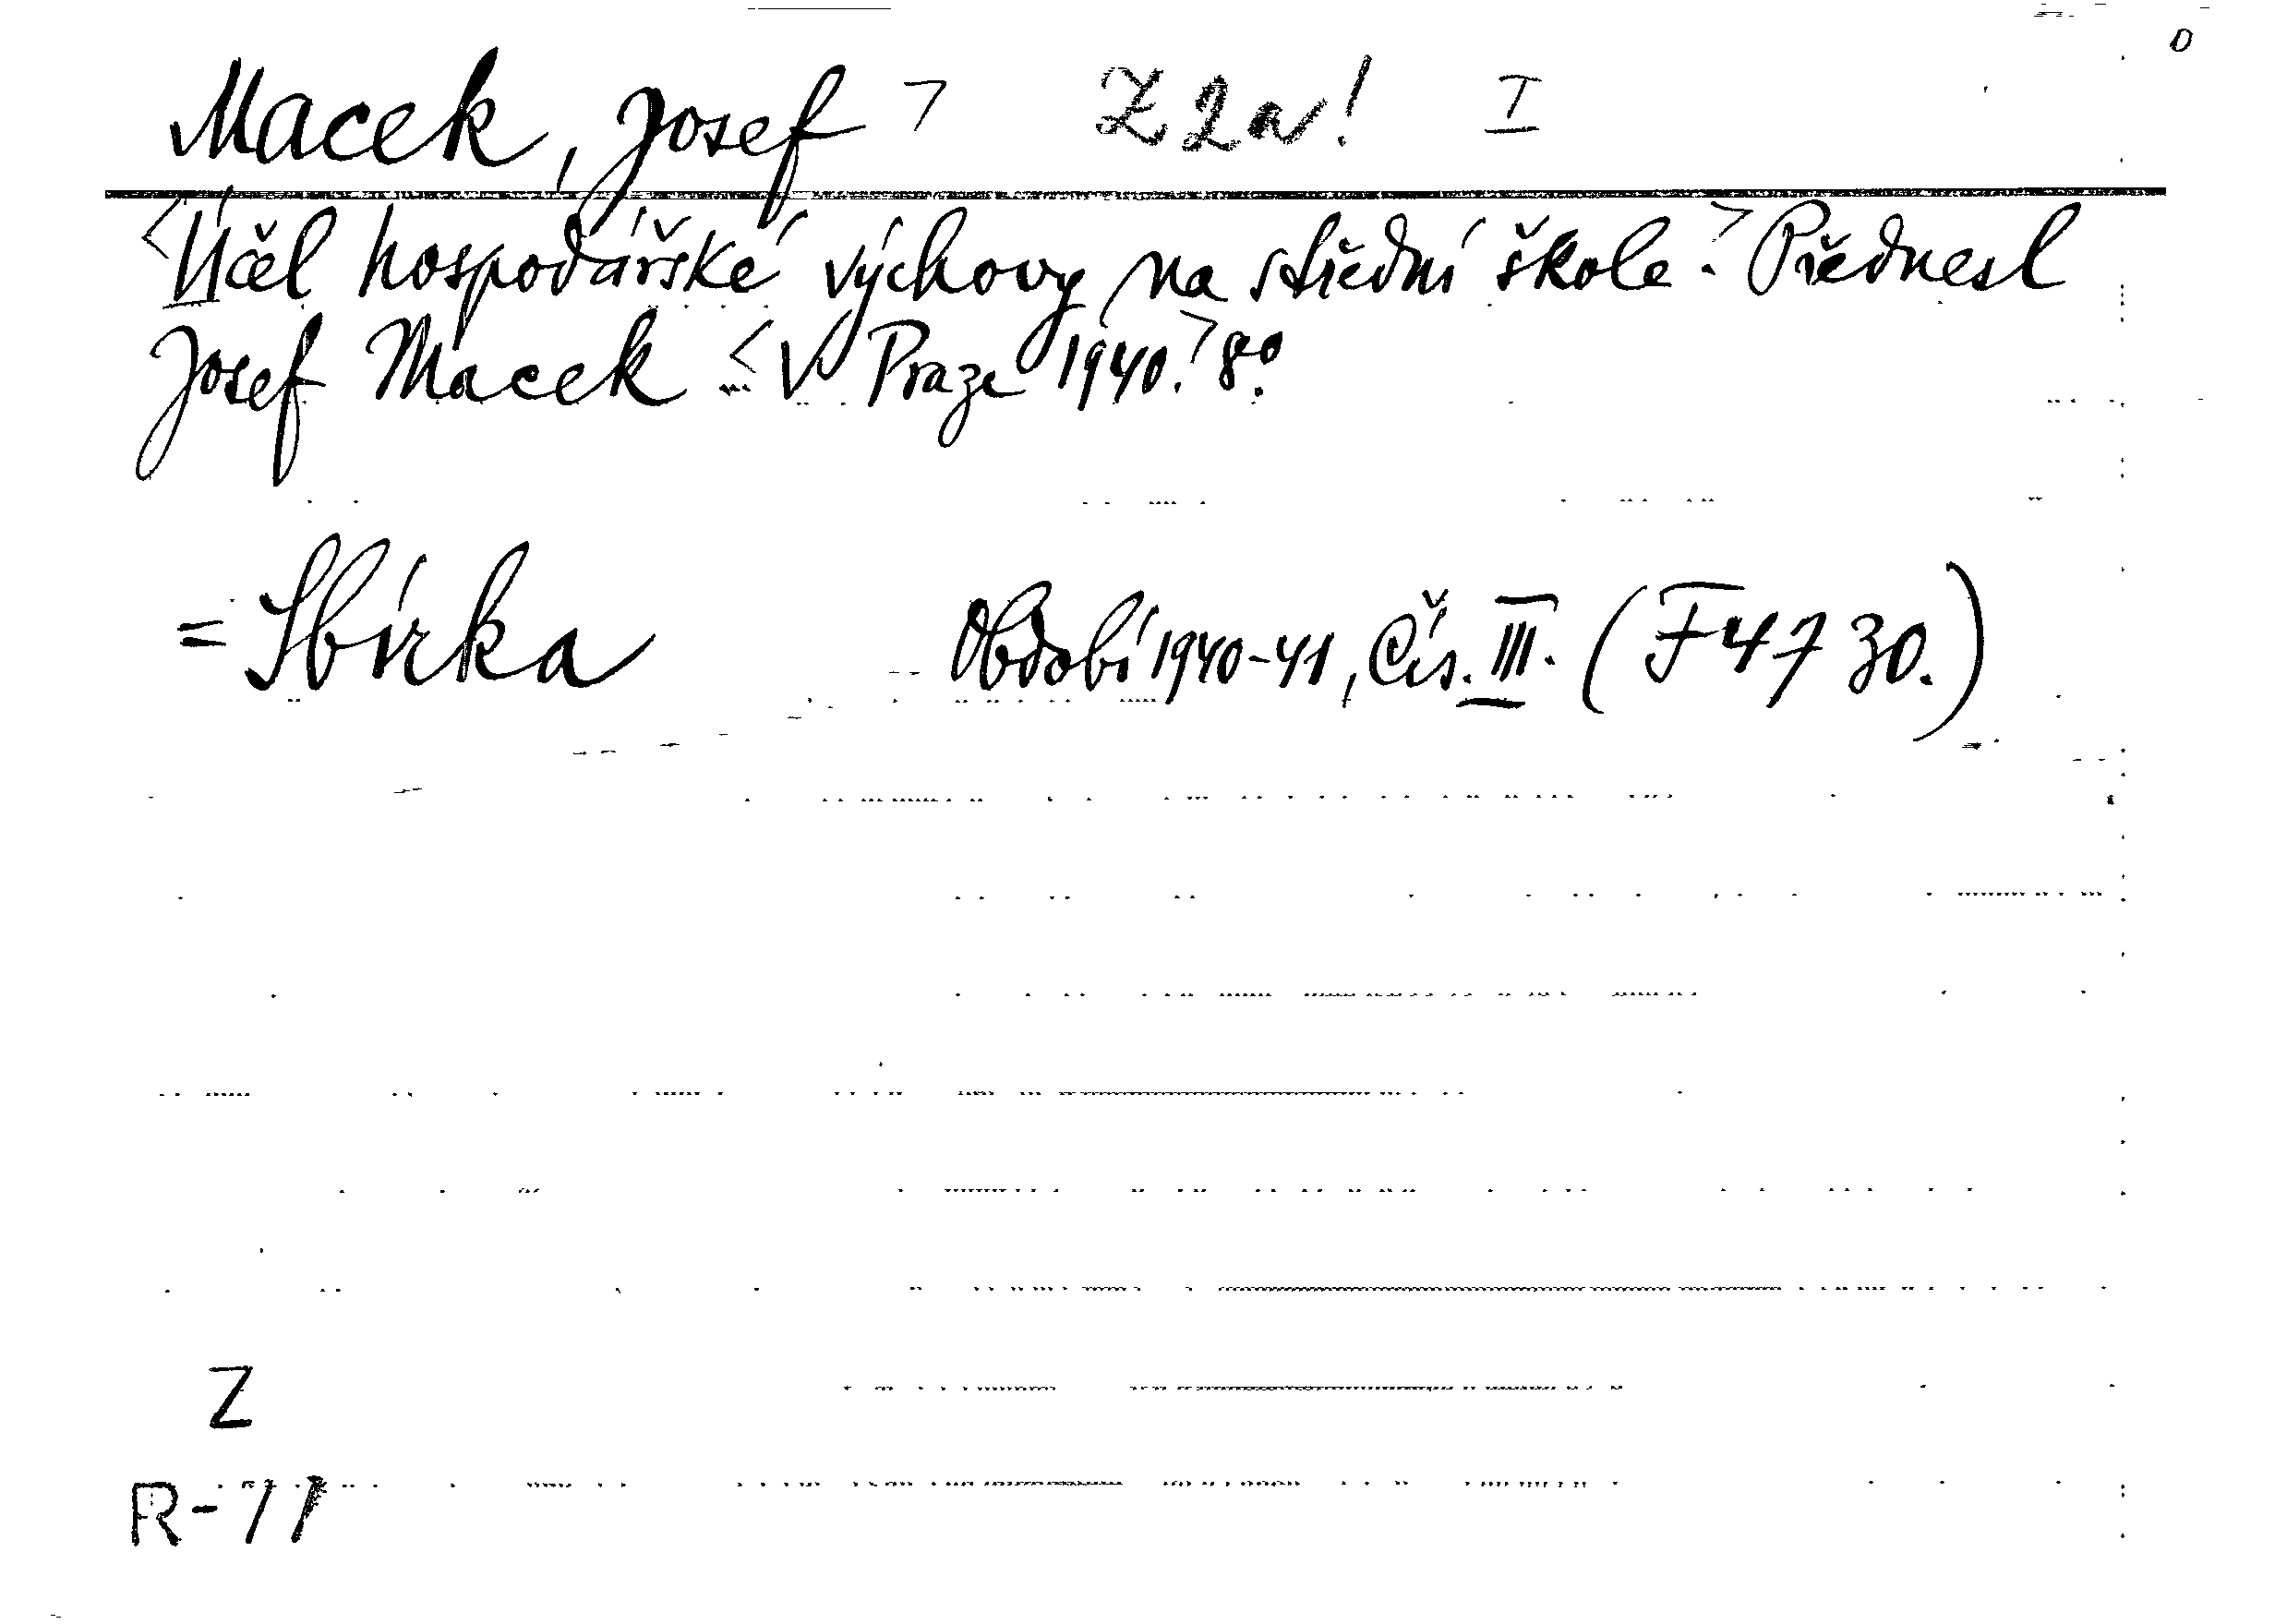 Macek, Josef > Z 2a! I
<Účel hospodářské výchovy na střední škole.> Přednesl
Josef Macek < V Praze 1940.> 8°.
= Sbírka Období 1940-41, Čís. III. (F 4730.)
Z
R-71